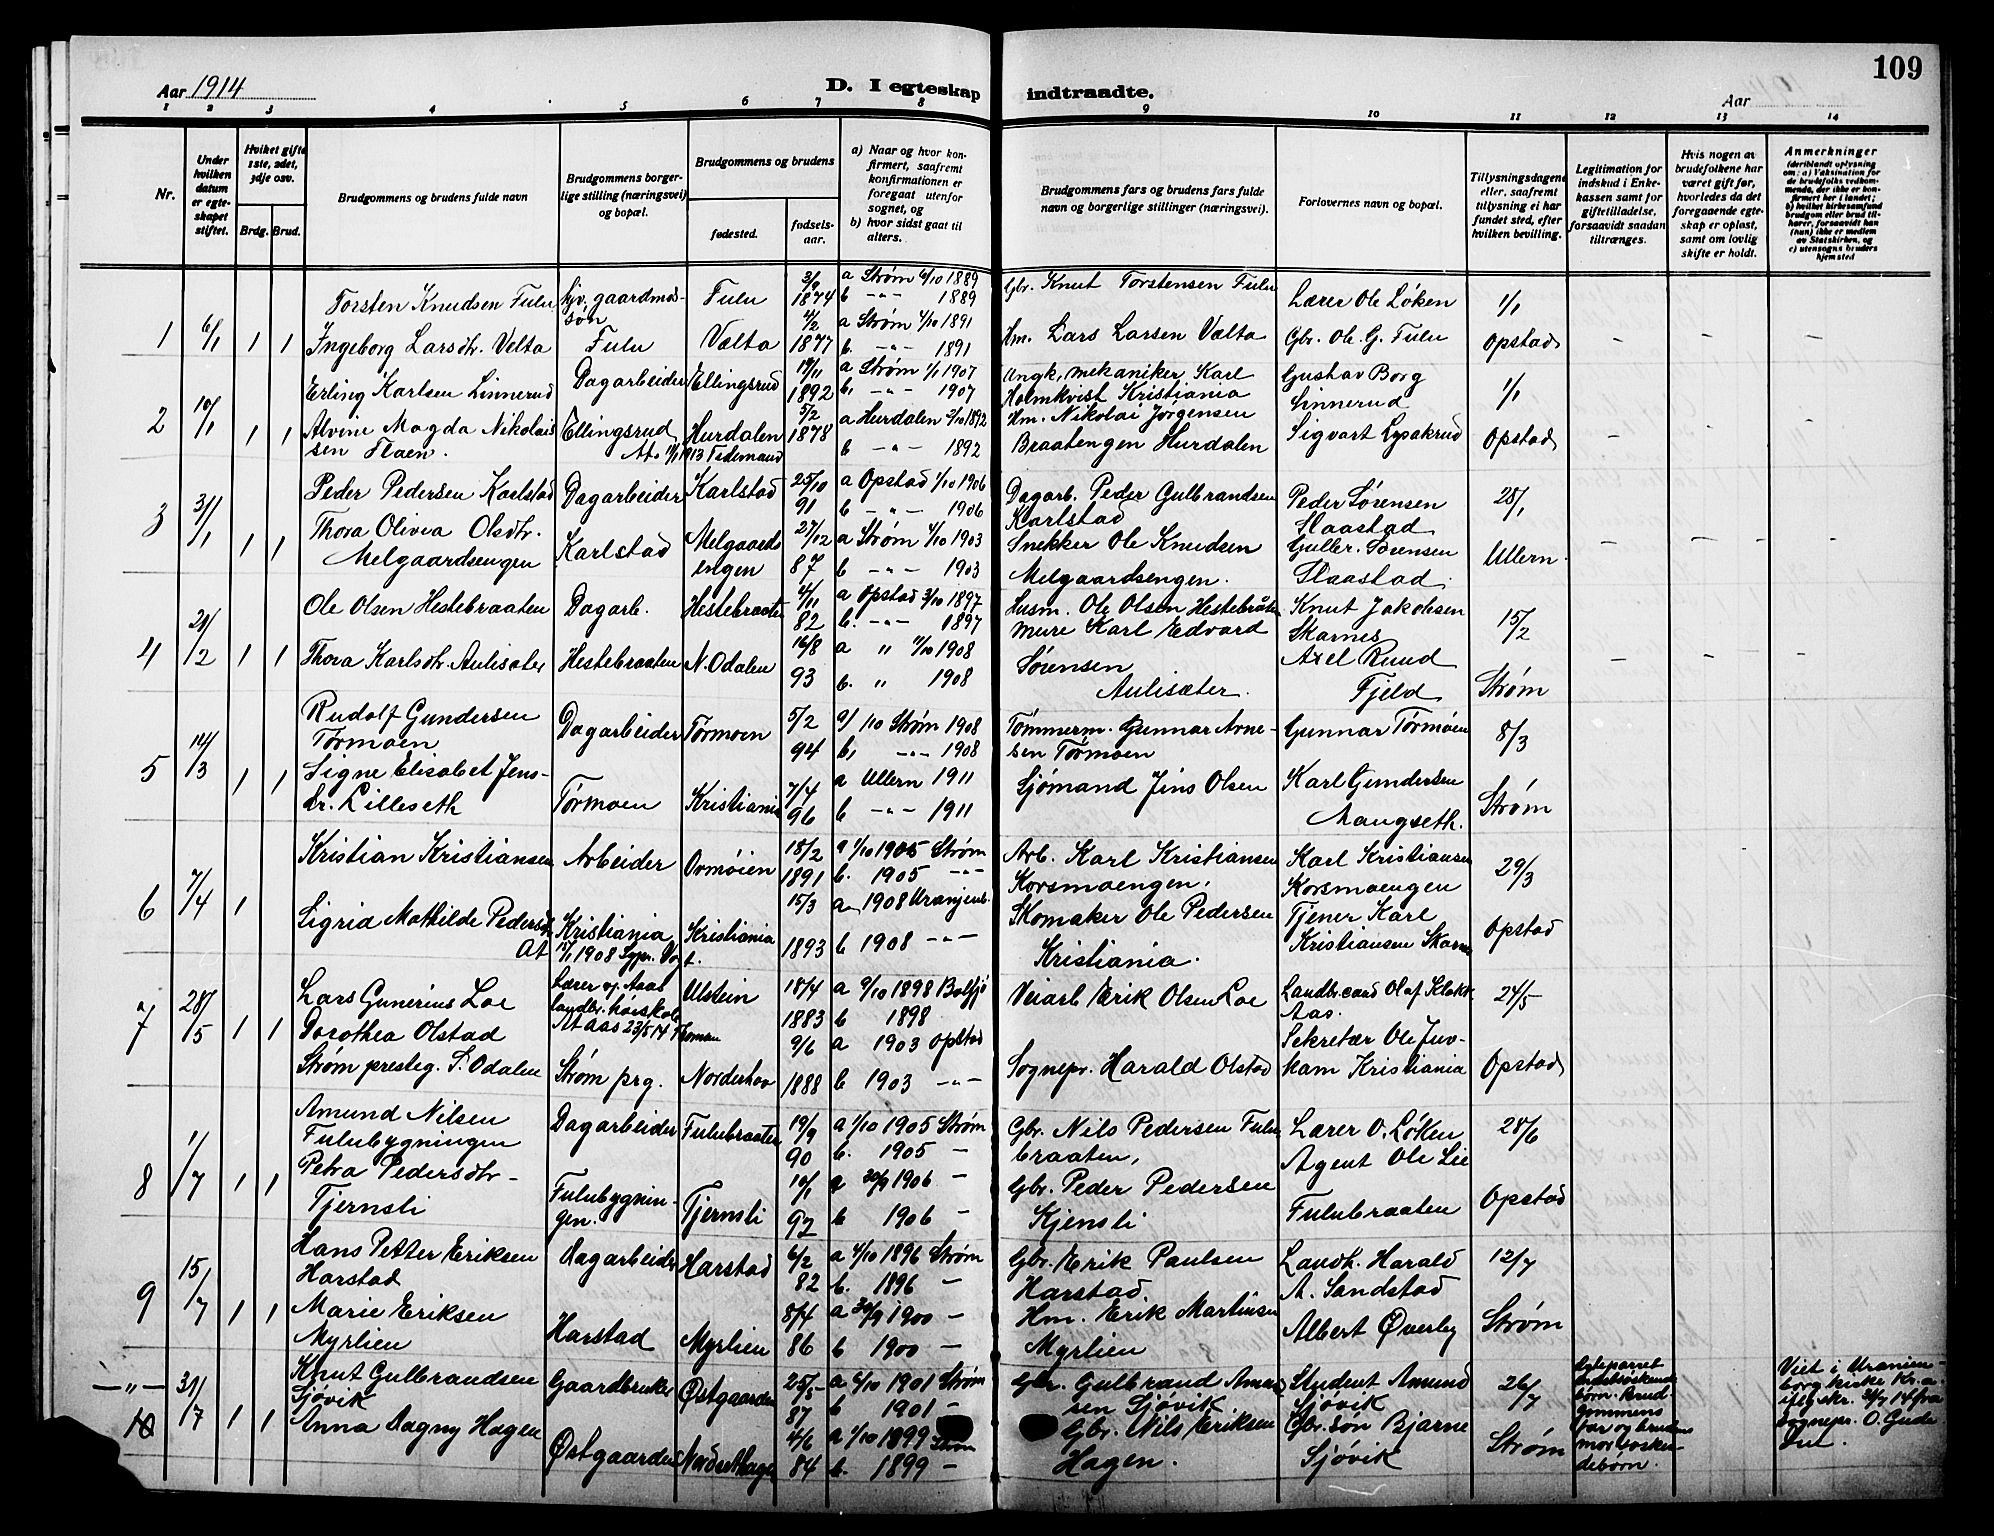 109
Aar 1914
D. I egteskap indtraadte.
Aar
1 2 3 4 5 6 7 8 9 10 11 12 13 14
Nr.
Under hvilken datum er egteskapet stiftet.
Hvilket gifte 1ste, 2det, 3dje osv.
Brdg. Brud.
Brudgommens og brudens fulde navn
Brudgommens borgerlige stilling (næringsvei) og bopæl.
Brudgommens og brudens
fødested.
fødselsaar.
a) Naar og hvor konfirmert, saafremt konfirmationen er foregaat utenfor sognet, og
b) hvor sidst gaat til alters.
Brudgommens fars og brudens fars fulde navn og borgerlige stillinger (næringsvei).
Forlovernes navn og bopæl.
Tillysningsdagene eller, saafremt tillysning ei har fundet sted, efter hvilken bevilling.
Legitimation for indskud i Enkekassen samt for giftetilladelse, forsaavidt saadan tiltrænges.
Hvis nogen av brudefolkene har været gift før, hvorledes da det foregaaende egteskap er opløst, samt om lovlig skifte er holdt.
Anmerkninger
1 6/1 1 1
Torsten Knudsen Fulu
søn
Fulu
3/9 1874
a Strøm 6/10 1889
b -"- 1889
Gbr. Knut Torstensen Fulu
Lærer Ole Løken
1/1
Ingeborg Larsdtr. Velta
Fulu
Vælta
4/2 1877
a Strøm 4/10 1891
b. -"- 1891
Hm. Lars Larsen Vælta
Gbr. Ole G. Fulu
Opstad
2 10/1 1 1
Erling Karlsen Linnerud
Dagarbeider
Ellingsrud
1892
a Strøm 1907
b. -"- 1907
mekaniker Karl
Holmkvist Kristiania
Gustav Borg
Linnerud
1/1
Alvine Magda Nikolaisen Flaen.
Ellingsrud
Hurdalen
5/2 1878
a Hurdalen 1892
b -"- 1892
Hm. Nikolai Jørgensen
Braatengen Hurdalen
Sigvart Lysakrud
Opstad
3 31/1 1 1
Peder Pedersen Karlstad
Dagarbeider
Karlstad
25/10 91
a Opstad 1/10 1906
b -"- 1906
Dagarb. Peder Gulbrandsen
Karlstad
Peder Sørensen
Slaastad
25/1
Thora Olivia Olsdtr.
Melgaardsengen
Karlstad
Melgaardsengen
27/12 87
a Strøm 4/10 1903
b -"- 1903
Snekker Ole Knudsen
Melgaardsengen.
Guller. Sørensen
Slaastad.
Ullern
4 21/2 1 1
Ole Olsen Hestebraaten
Dagarb.
Hestebraaten
4/11 82
a Opstad 3/10 1897
b. -"- 1897
Husm. Ole Olsen Hestebråten
Knut Jakobsen
Skarnes
15/2
Thora Karlsdtr. Aulisæter
Hestebraaten
N. Odalen
16/8 93
a " 11/10 1908
b. " 1908
Mure Karl Edvard
Sørensen
Aulisæter.
Axel Ruud
Fjeld
Strøm
5 14/3 1 1
Rudolf Gundersen
Tørmoen
Dagarbeider
Tørmoen
5/2 94
Strøm 1908
b, -"- 1908
Tømmerm. Gunnar Arnesen Tørmoen
Gunnar Tørmoen
8/3
Signe Elisabet Jensdr. Lilleseth
Tørmoen
Kristiania
7/4 96
a Ullern 1911
b -"- 1911
Sjømand Jens Olsen
Karl Gundersen
Maugseth.
Strøm
6 7/4 1
Kristian Kristiansen
Arbeider
Ormøien
18/2 1891
a 1/10 1905 Strøm
b. 1905 -"-
Arb. Karl Kristiansen
Korsmoengen.
Karl Kristiansen
Korsmoengen
29/3
Sigrid Mathilde Pedersdtr
Kristiania
Kristiania
15/3 1893
a 1908 Uranjenb.
b 1908 -"-
Skomaker Ole Pedersen
Kristiania.
Tjener Karl
Kristiansen Skarnes
Opstad
7 28/5 1 1
Lars Gunerius Loe
Lærer v. Aaas
landbr. høiskole
Ulstein
18/4 1883
a 9/10 1898
b 1898
Veiarb Erik Olsen Loe
Landbr.cand Olaf Klokk
Aas.
24/5
Dorothea Olstad
Strøm presteg. S. Odalen
Strøm prg.
Norderhov
9/6 1888
a 1903 Opstad
b 1903 -"-
Sognepr. Harald Olstad
Sekretær Ole Juvkam Kristiania
Opstad
8 1/7 1 1
Amund Nilsen
Fulubygningen
Dagarbeider
Fulubraaten
19/9 90
a 1/10 1905 Strøm
b. 1905 -
Gbr. Nils Pedersen Fulubraaten,
Lærer O. Løken
28/6
Petra Pedersdtr-
Tjernsli
Fulubygningen.
Tjernsli
10/1 92
a 30/9 1906 -
b 1906 -
Gbr. Peder Pedersen
Kjensli
Agent Ole Lie
Fulubraaten
Opstad
9 15/7 1 1
Hans Petter Eriksen
Harstad
Dagarbeider
Harstad
6/2 82
a 4/10 1896 Strøm
b. 1896 -
Gbr. Erik Paulsen
Harstad.
Landh. Harald
A. Sandstad
12/7
Marie Eriksen
Myrlien
Harstad
Myrlien
8/4 86
a 30/9 1900 -
b 1900 -
Hm. Erik Martinsen
Myrlien
Albert Øverby
Strøm
-"- 10 31/7 1 1
Knut Gulbrandsen
Sjøvik
Gaardbruker
Østgaarden
25/5 87
a 6/10 1901 Strøm
b 1901 -
Gbr. Gulbrand Amundsen Sjøvik
Student Amund
Sjøvik
26/7
Anna Dagny Hagen
Østgaarden
4/6 84
a 1/10 1899 Strøm
b. 1899 -
Gbr. Nils Eriksen
Hagen.
Gbr. søn Bjarne
Sjøvik
Strøm